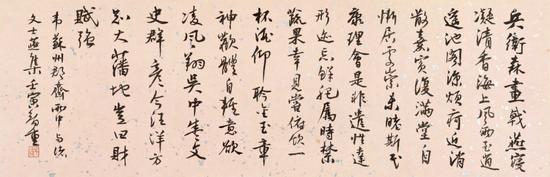 兵衛森畫戟燕寢
凝清香海上風雨至逍
遙池閣涼煩痾近消
散嘉賓復滿堂自
慚居處崇未睹斯民
康理會是非遣性達
形迹忘鮮肥屬時禁
蔬果幸見嘗俯飲一
杯酒仰聆金玉章
神歡體自輕意欲
凌風翔吳中盛文
史群彥今汪洋方
知大藩地豈曰財
賦強
韋蘇州郡齋雨中与諸
文士燕集壬寅智重